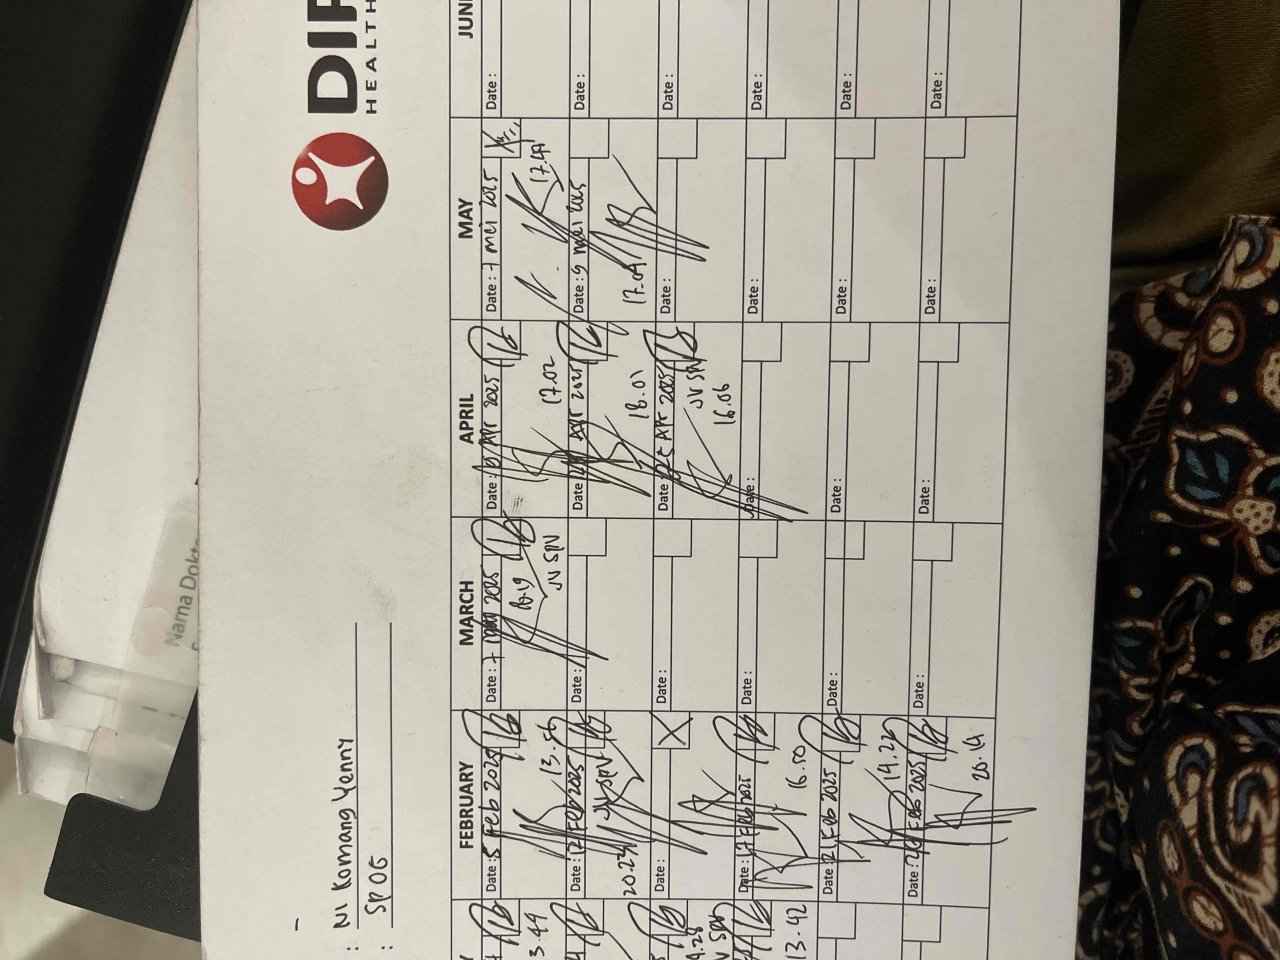 DI
HEALTH
: NI Komang Yenny
: SP OG
Nama Dokt
FEBRUARY
MARCH
APRIL
MAY
JUN
3.44
Date : 5 Feb 2025
13.56
Date : 7 2025
18.19
JV SPV
Date : Apr 2025
17.02
Date : 7 mei 2025
17.47
Date :
Date : 12 Feb 2025
JV SPV
20.22
Date :
Date : Apr 2025
18.01
Date : 9 mei 2025
17.04
Date :
4.28
Date :
Date :
Date : Apr 2025
JV SPV
16.06
Date :
Date :
13.42
Date : 17 Feb 2025
16.50
Date :
Date :
Date :
Date :
Date : 21 Feb 2025
14.22
Date :
Date :
Date :
Date :
Date : Feb 2025
20.14
Date :
Date :
Date :
Date :